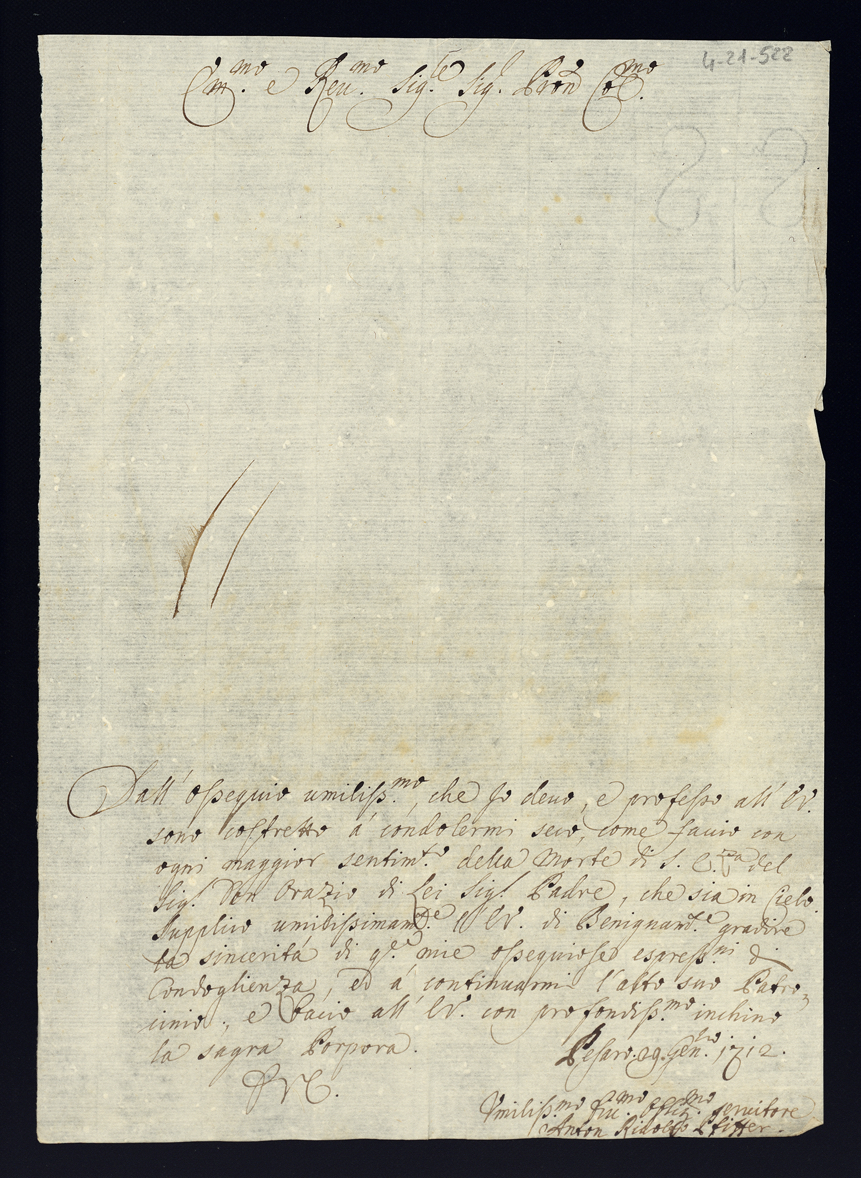 4-21-522
Em.mo e Reu.mo Sig.re Sig.r Pron Col.mo
Dall' ossequio umiliss.mo, che Io deuo, e professo all' EV.
sono costretto á condolermi seco, come faccio con
ogni maggior sentim.to della Morte di S. E.za del
Sig.r Don Orazio di Lei Sig.r Padre, che sia in Cielo.
Supplico umilissimam.te l'EV. di Benignam.te gradire
la sincerità di q.te mie ossequiose espress.ni di
Condoglienza, ed á continuarmi l'alto suo Patro-
cinio, e bacio all' EV. con profondiss.mo inchino
la sagra Porpora.
Pesaro 29. Gen.ro 1712.
DVE.
Vmiliss.mo Diu.mo Obblig.mo Seruitore
Anton Ridolfo Pfiffer.